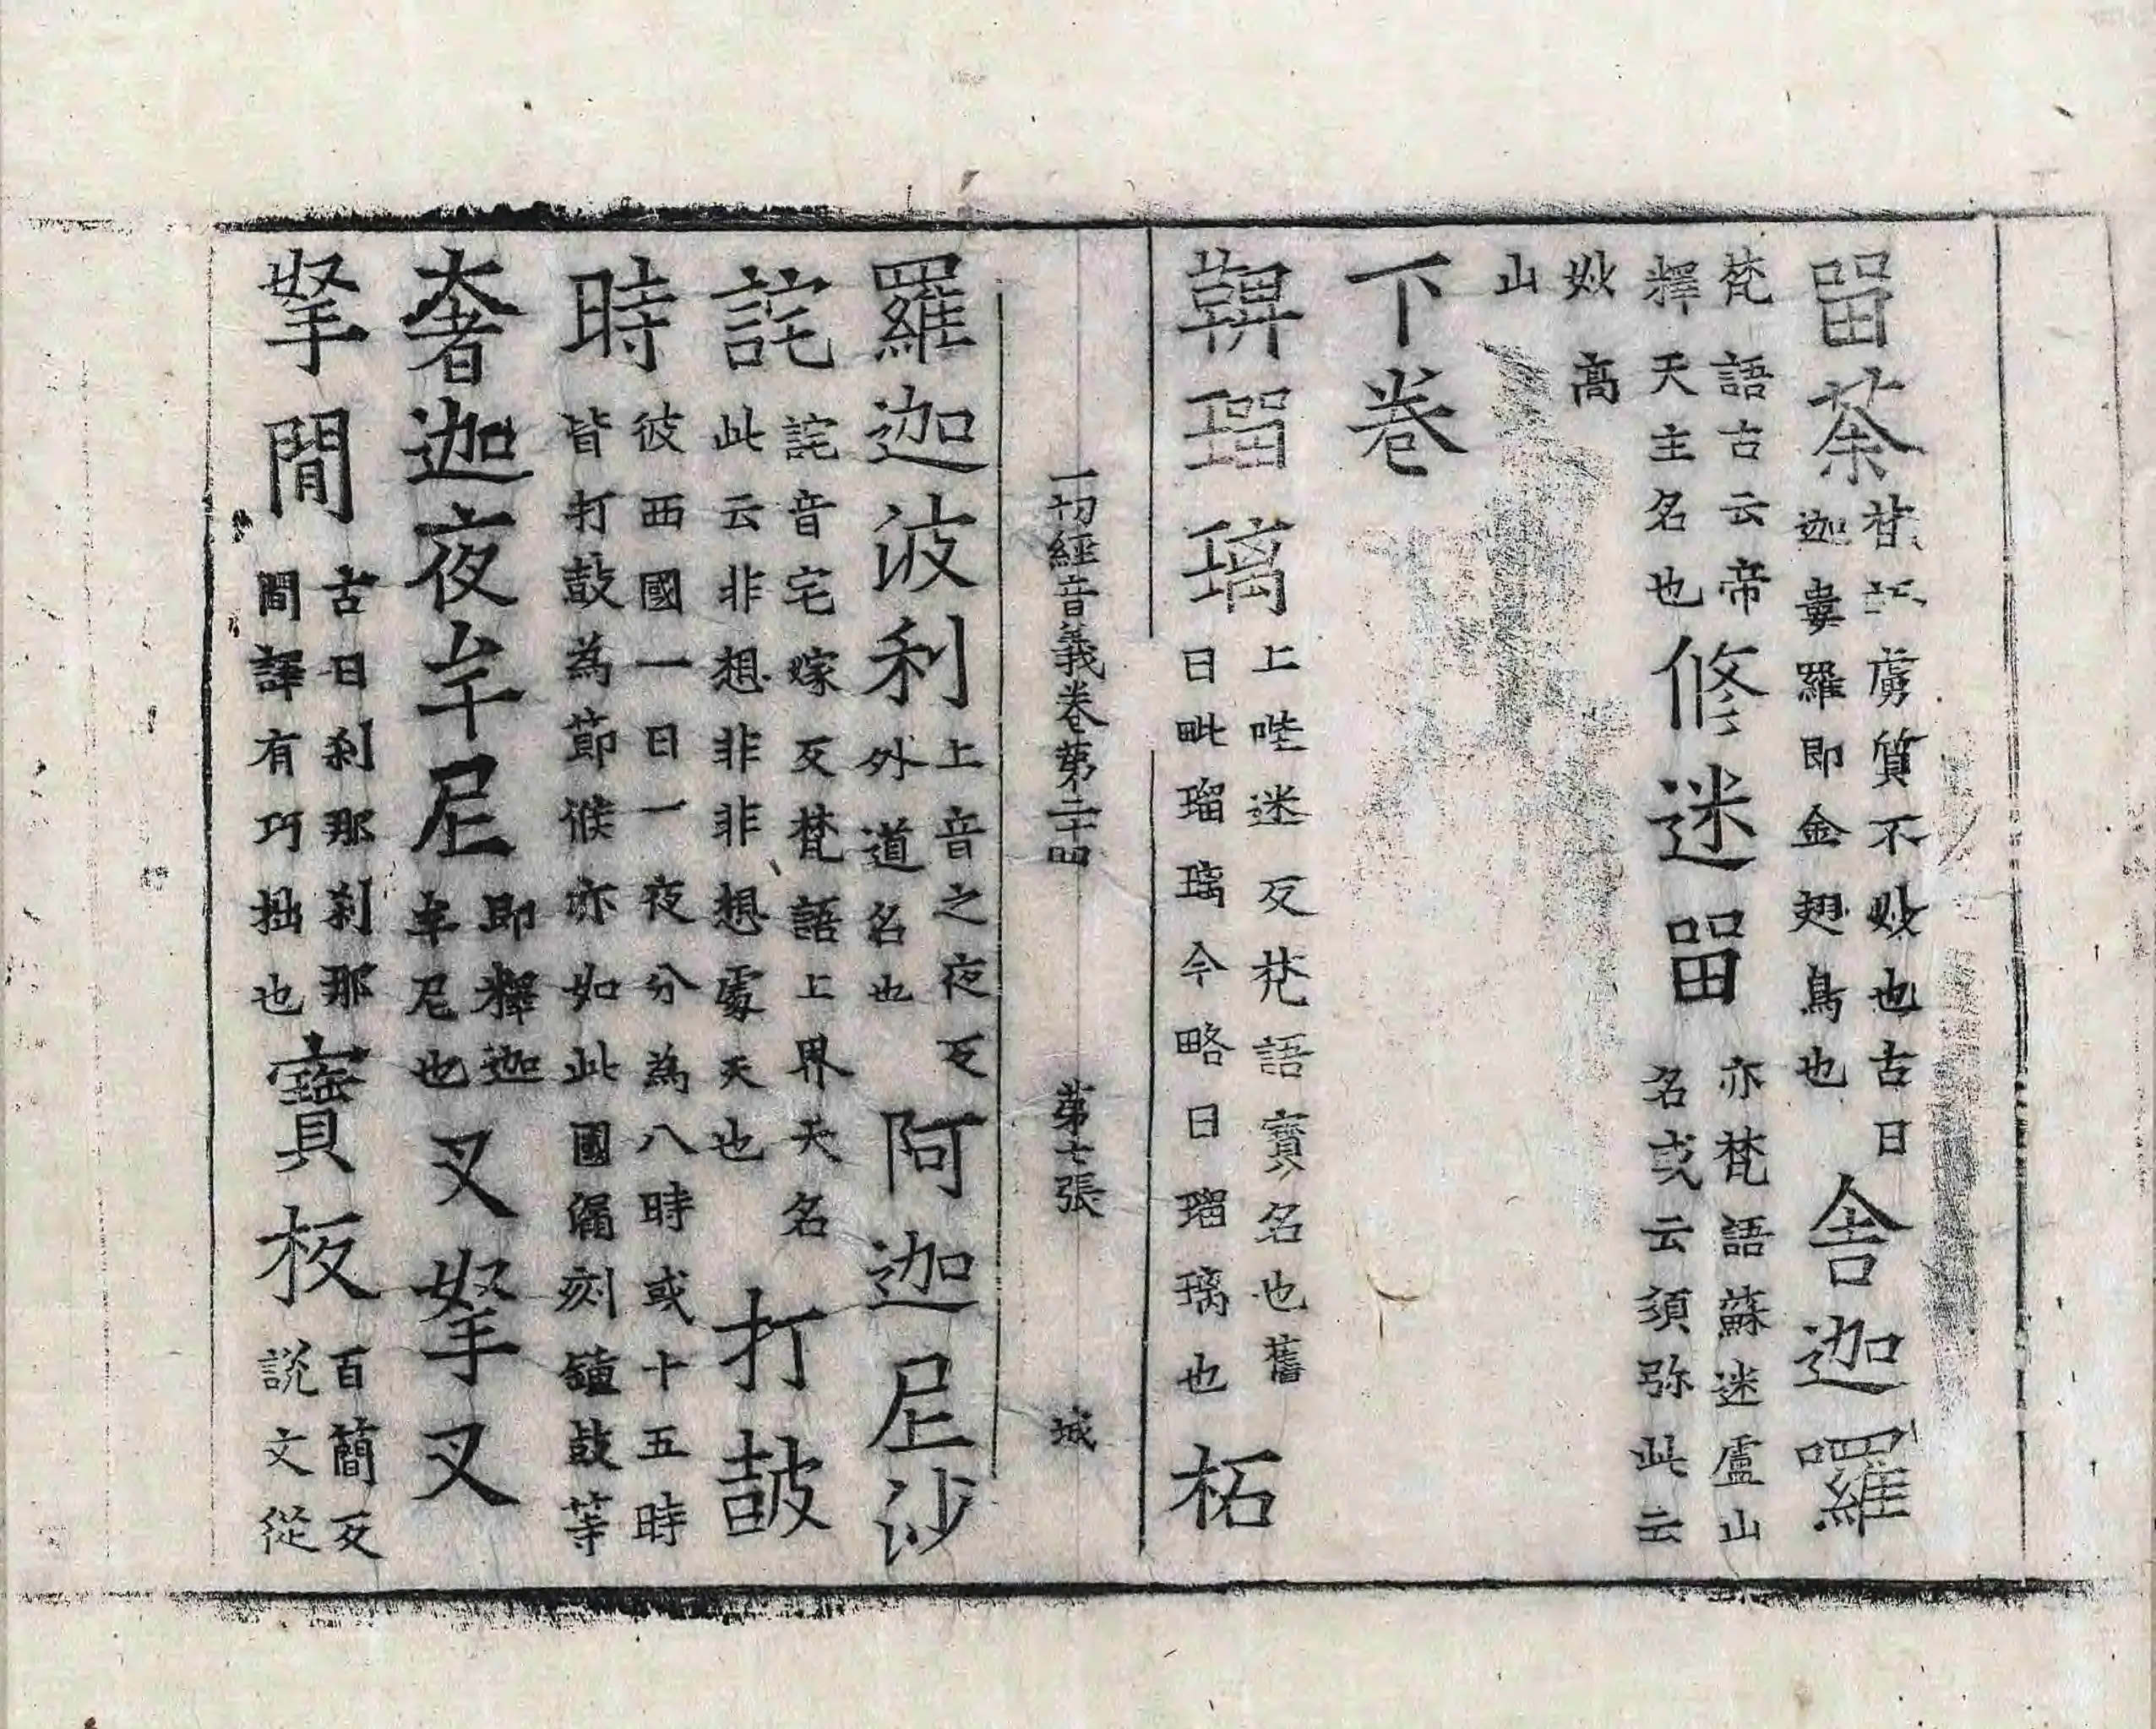 𤲞荼皆訛虜質不妙也古曰迦婁羅即金翅鳥也舎迦羅
梵語古云帝釋天主名也修迷𤲞亦梵語蘇迷盧山名或云須弥此云
妙高山
下卷
鞞瑠璃上陛迷反梵語寶名也舊曰毗瑠璃今略曰瑠璃也柘
一切經音義卷苐二十四 苐七張 城
羅迦波利上音之夜反外道名也阿迦尼沙
詫詫音宅嫁反梵語上界天名此云非想非非想處天也打皷
時彼西國一日一夜分為八時或十五時皆打鼓為節候亦如此國漏刻鐘鼓等
奢迦夜牟尼即釋迦牟尼也叉拏叉
拏間古曰刹那刹那間譯有巧拙也寶板百簡反說文從